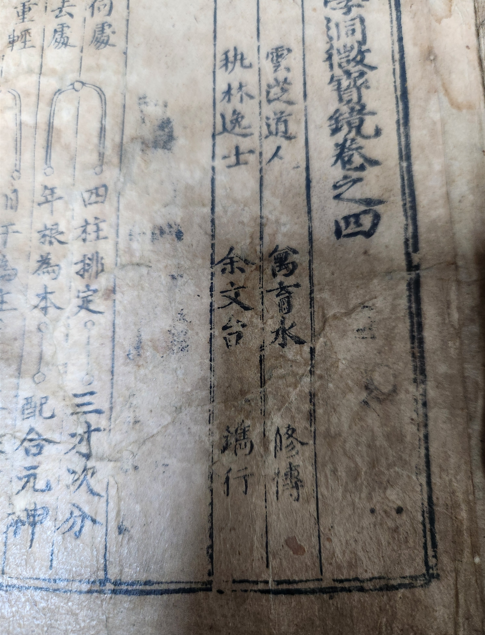 洞微寶鏡卷之四
雲渓道人 萬育水 修傳
執林逸士 余文台 鐫行
何處 四柱排定 三才次分
去處 年根為本 配合元神
重輕